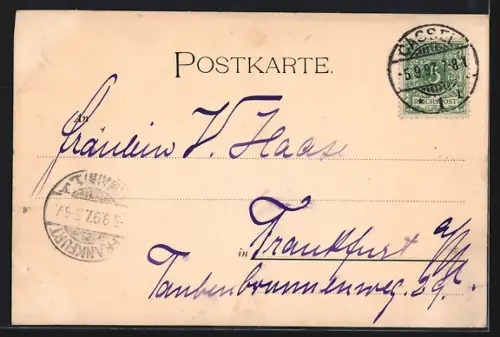 POSTKARTE.
CASSEL
5.9.97.7-8.N
1
REICHSPOST
An
Fräulein V. Haase
FRANKFURT
(MAIN)
in Frankfurt a/M.
Taubenbrunnenweg. 29.